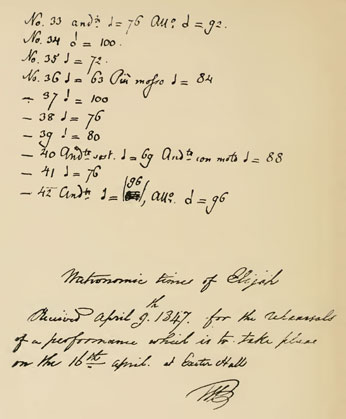 No. 33 andte ♩= 76 Allo. 𝅗𝅥= 92.
No. 34 𝅗𝅥 = 100.
No. 35 ♩= 72.
No. 36 ♩= 63 Più mosso ♩= 84
— 37 ♩ = 100
— 38 ♩ = 76
— 39 ♩ = 80
— 40 Andte sost. ♩= 69 Andte con moto ♩= 88
— 41 ♩= 76
— 42 Andte ♩= 96, Allo. 𝅗𝅥= 96
Metronomic times of Elijah
Received April 9th. 1847. for the rehearsals
of a performance which is to take place
on the 16th April. at Exeter Hall